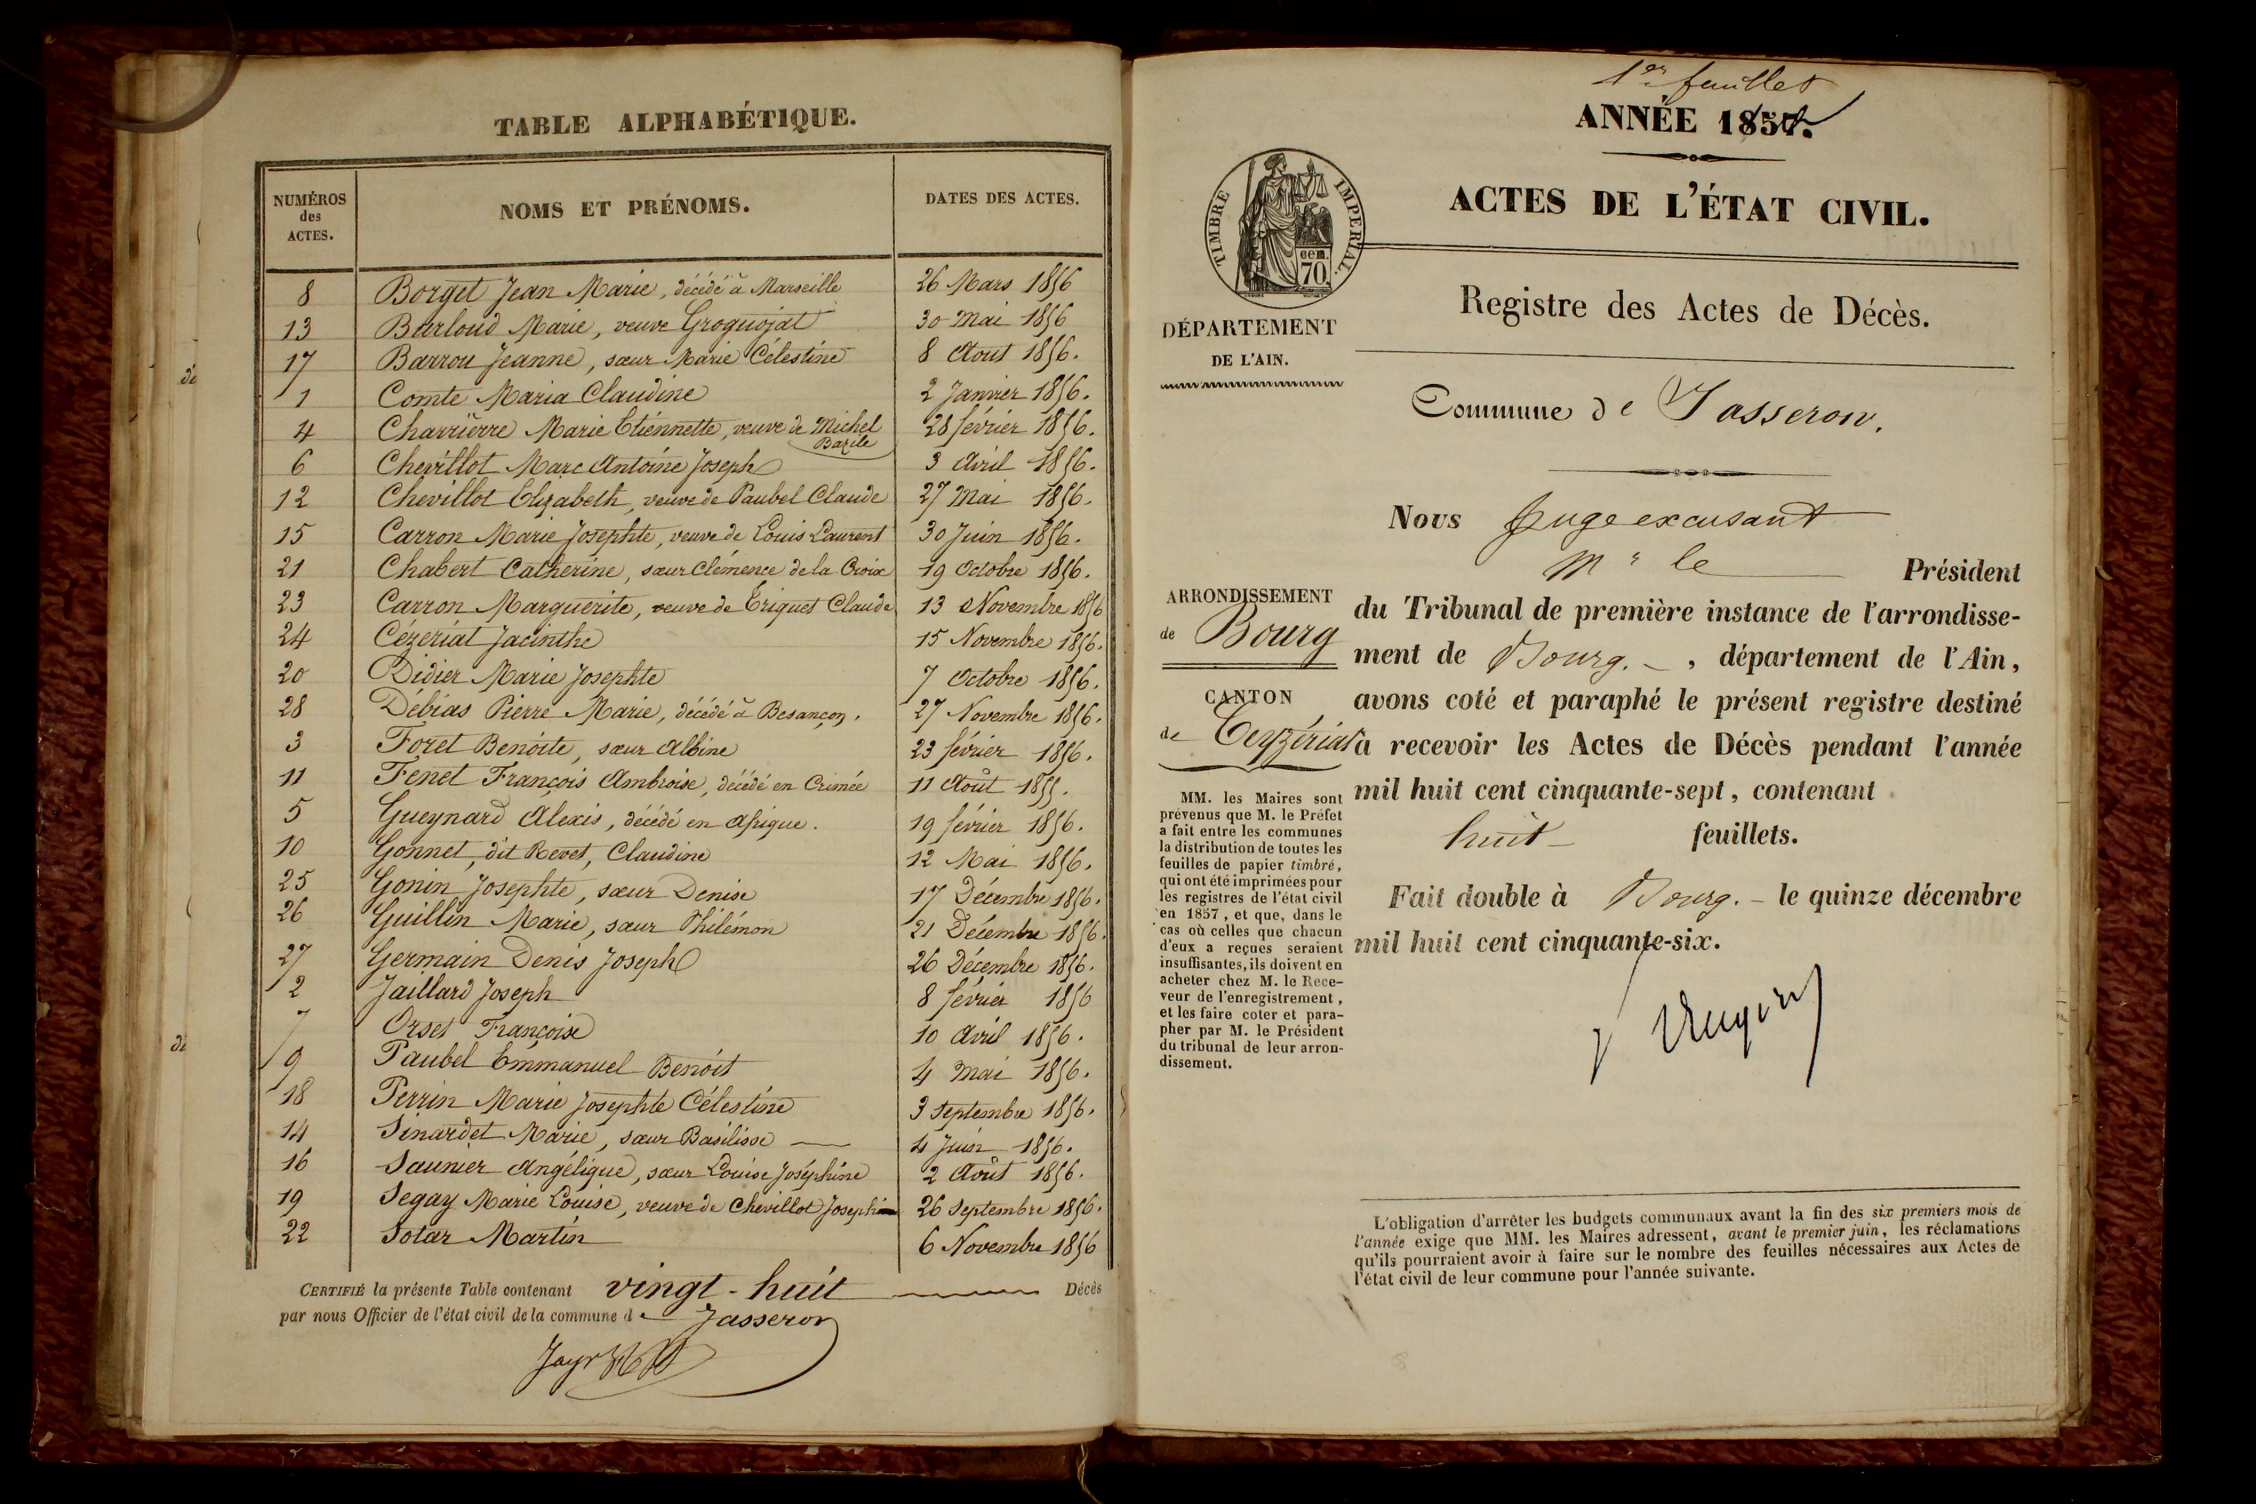 TABLE ALPHABÉTIQUE.
NUMÉROS des ACTES. NOMS ET PRÉNOMS. DATES DES ACTES.
8 Borget Jean Marie, décédé à Marseille 26 Mars 1856
13 Burloud Marie, veuve Groguojat 30 Mai 1856
17 Barrou Jeanne, sœur Marie Célestine 8 Aout 1856.
1 Comte Maria Claudine 2 Janvier 1856.
4 Charrierre Marie Etiennette, veuve de Michel Bazile 28 février 1856.
6 Chevillot Marc Antoine Joseph 3 Avril 1856.
12 Chevillot Elizabeth, veuve de Paubel Claude 27 Mai 1856.
15 Carron Marie Josephte, veuve de Louis Laurent 30 Juin 1856.
21 Chabert Catherine, sœur Clémence de la Croix 19 Octobre 1856.
23 Carron Marguerite, veuve de Eriquet Claude 13 Novembre 1856
24 Cézeriat Jacinthe 15 Novembre 1856.
20 Didier Marie Josephte 7 Octobre 1856.
28 Débias Pierre Marie, décédé à Besançon. 27 Novembre 1856.
3 Foret Benoite, sœur Albine 23 février 1856.
11 Fenet François Ambroise, décédé en Crimée 11 Août 1855.
5 Gueynard Alexis, décédé en Afrique. 19 février 1856.
10 Gonnet, dit Revet, Claudine 12 Mai 1856.
25 Gonin Josephte, sœur Denise 17 Décembre 1856.
26 Guillin Marie, sœur Philémon 21 Décembre 1856.
27 Germain Denis Joseph 26 Décembre 1856.
2 Jaillard Joseph 8 février 1856
7 Orset Françoise 10 Avril 1856.
9 Paubel Emmanuel Benoit 4 Mai 1856.
18 Perrin Marie Josephte Célestine 3 Septembre 1856.
14 Sinardet Marie, sœur Basilisse 4 Juin 1856.
16 Saunier Angélique, sœur Louise Joséphine 2 Août 1856.
19 Segay Marie Louise, veuve de Chevillot Joseph 26 Septembre 1856.
22 Sotar Martin 6 Novembre 1856
CERTIFIÉ la présente Table contenant vingt-huit Décès
par nous Officier de l'état civil de la commune de Jasseron
1er feuillet
ANNÉE 1857.
ACTES DE L'ÉTAT CIVIL.
TIMBRE IMPERIAL.
cem. 70.
DÉPARTEMENT
DE L'AIN.
Registre des Actes de Décès.
Commune de Jasseron.
Nous Juge excusant
Mr le Président
du Tribunal de première instance de l'arrondisse-
ment de Bourg. , département de l'Ain,
avons coté et paraphé le présent registre destiné
a recevoir les Actes de Décès pendant l'année
mil huit cent cinquante-sept, contenant
huit feuillets.
Fait double à Bourg. le quinze décembre
mil huit cent cinquante-six.
ARRONDISSEMENT
de Bourg
CANTON
de Ceyzériat
MM. les Maires sont
prévenus que M. le Préfet
a fait entre les communes
la distribution de toutes les
feuilles de papier timbré,
qui ont été imprimées pour
les registres de l'état civil
en 1857, et que, dans le
cas où celles que chacun
d'eux a reçues seraient
insuffisantes, ils doivent en
acheter chez M. le Rece-
veur de l'enregistrement,
et les faire coter et para-
pher par M. le Président
du tribunal de leur arron-
dissement.
L'obligation d'arrêter les budgets communaux avant la fin des six premiers mois de
l'année exige que MM. les Maires adressent, avant le premier juin, les réclamations
qu'ils pourraient avoir à faire sur le nombre des feuilles nécessaires aux Actes de
l'état civil de leur commune pour l'année suivante.